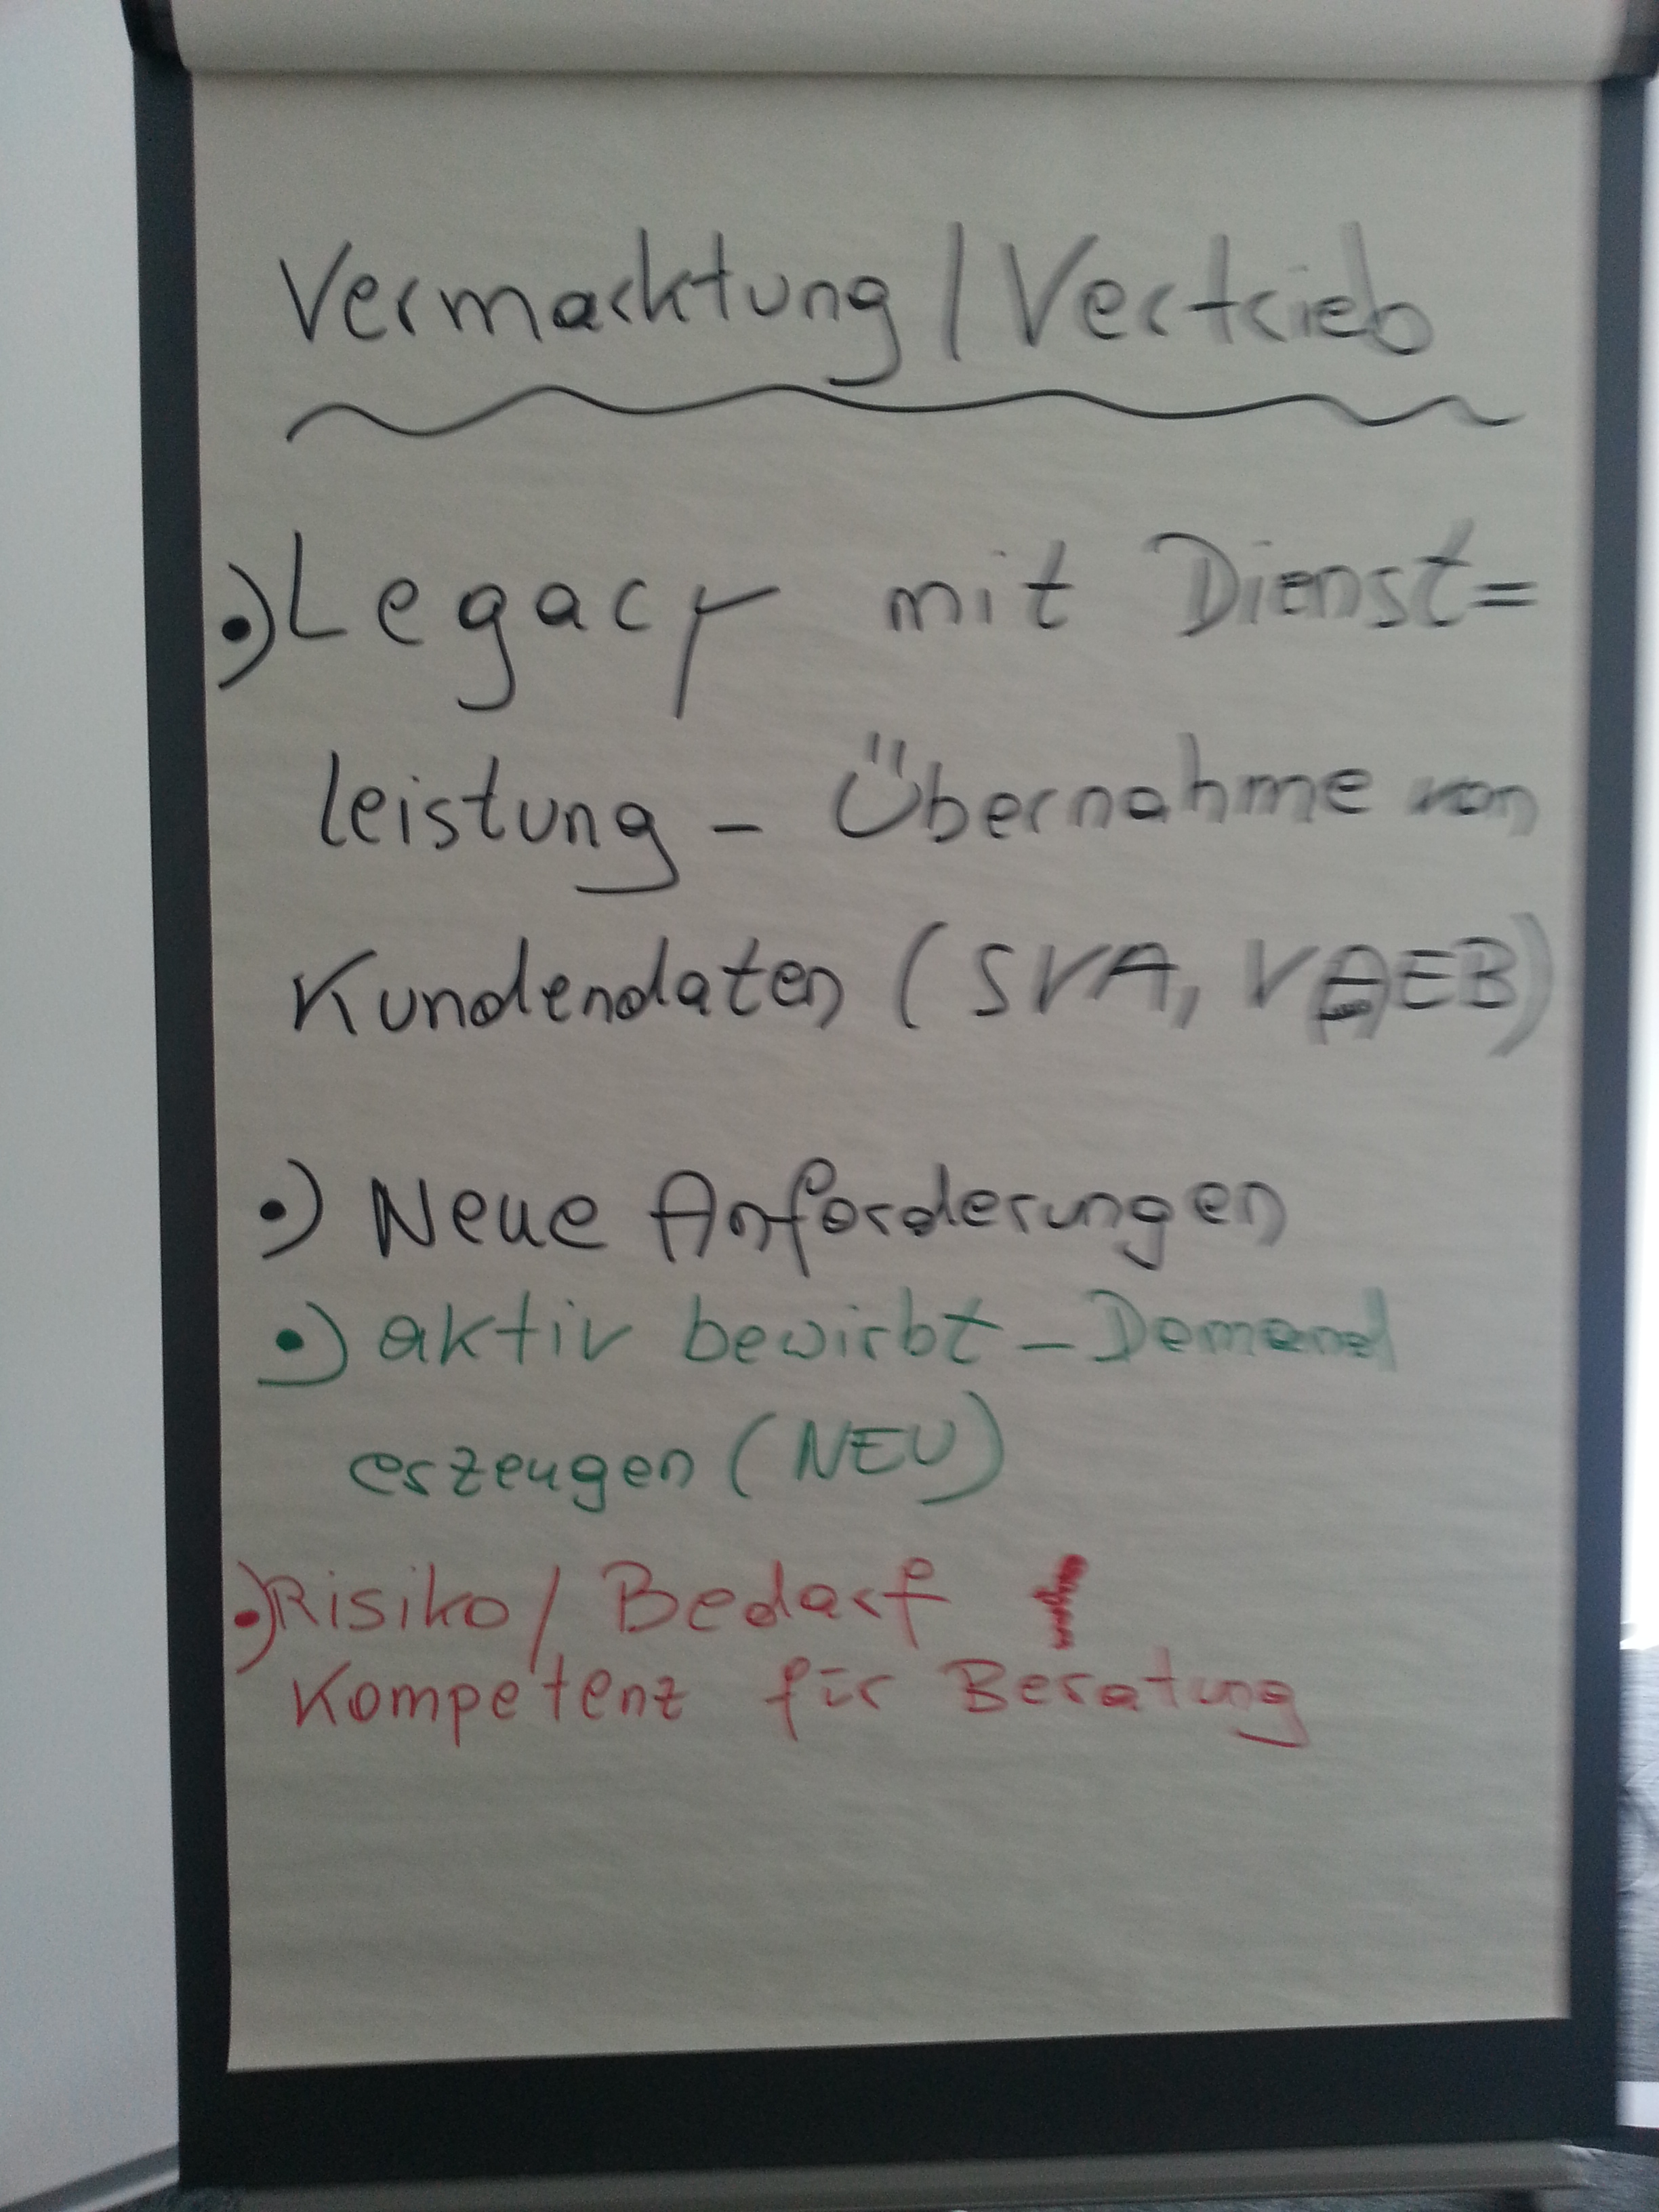 Vermarktung / Vertrieb
•) Legacy mit Dienst=
leistung - Übernahme von
Kundendaten (SVA, VAEB)
•) Neue Anforderungen
•) aktiv bewirbt - Demand
erzeugen (NEU)
•) Risiko / Bedarf
Kompetenz für Beratung